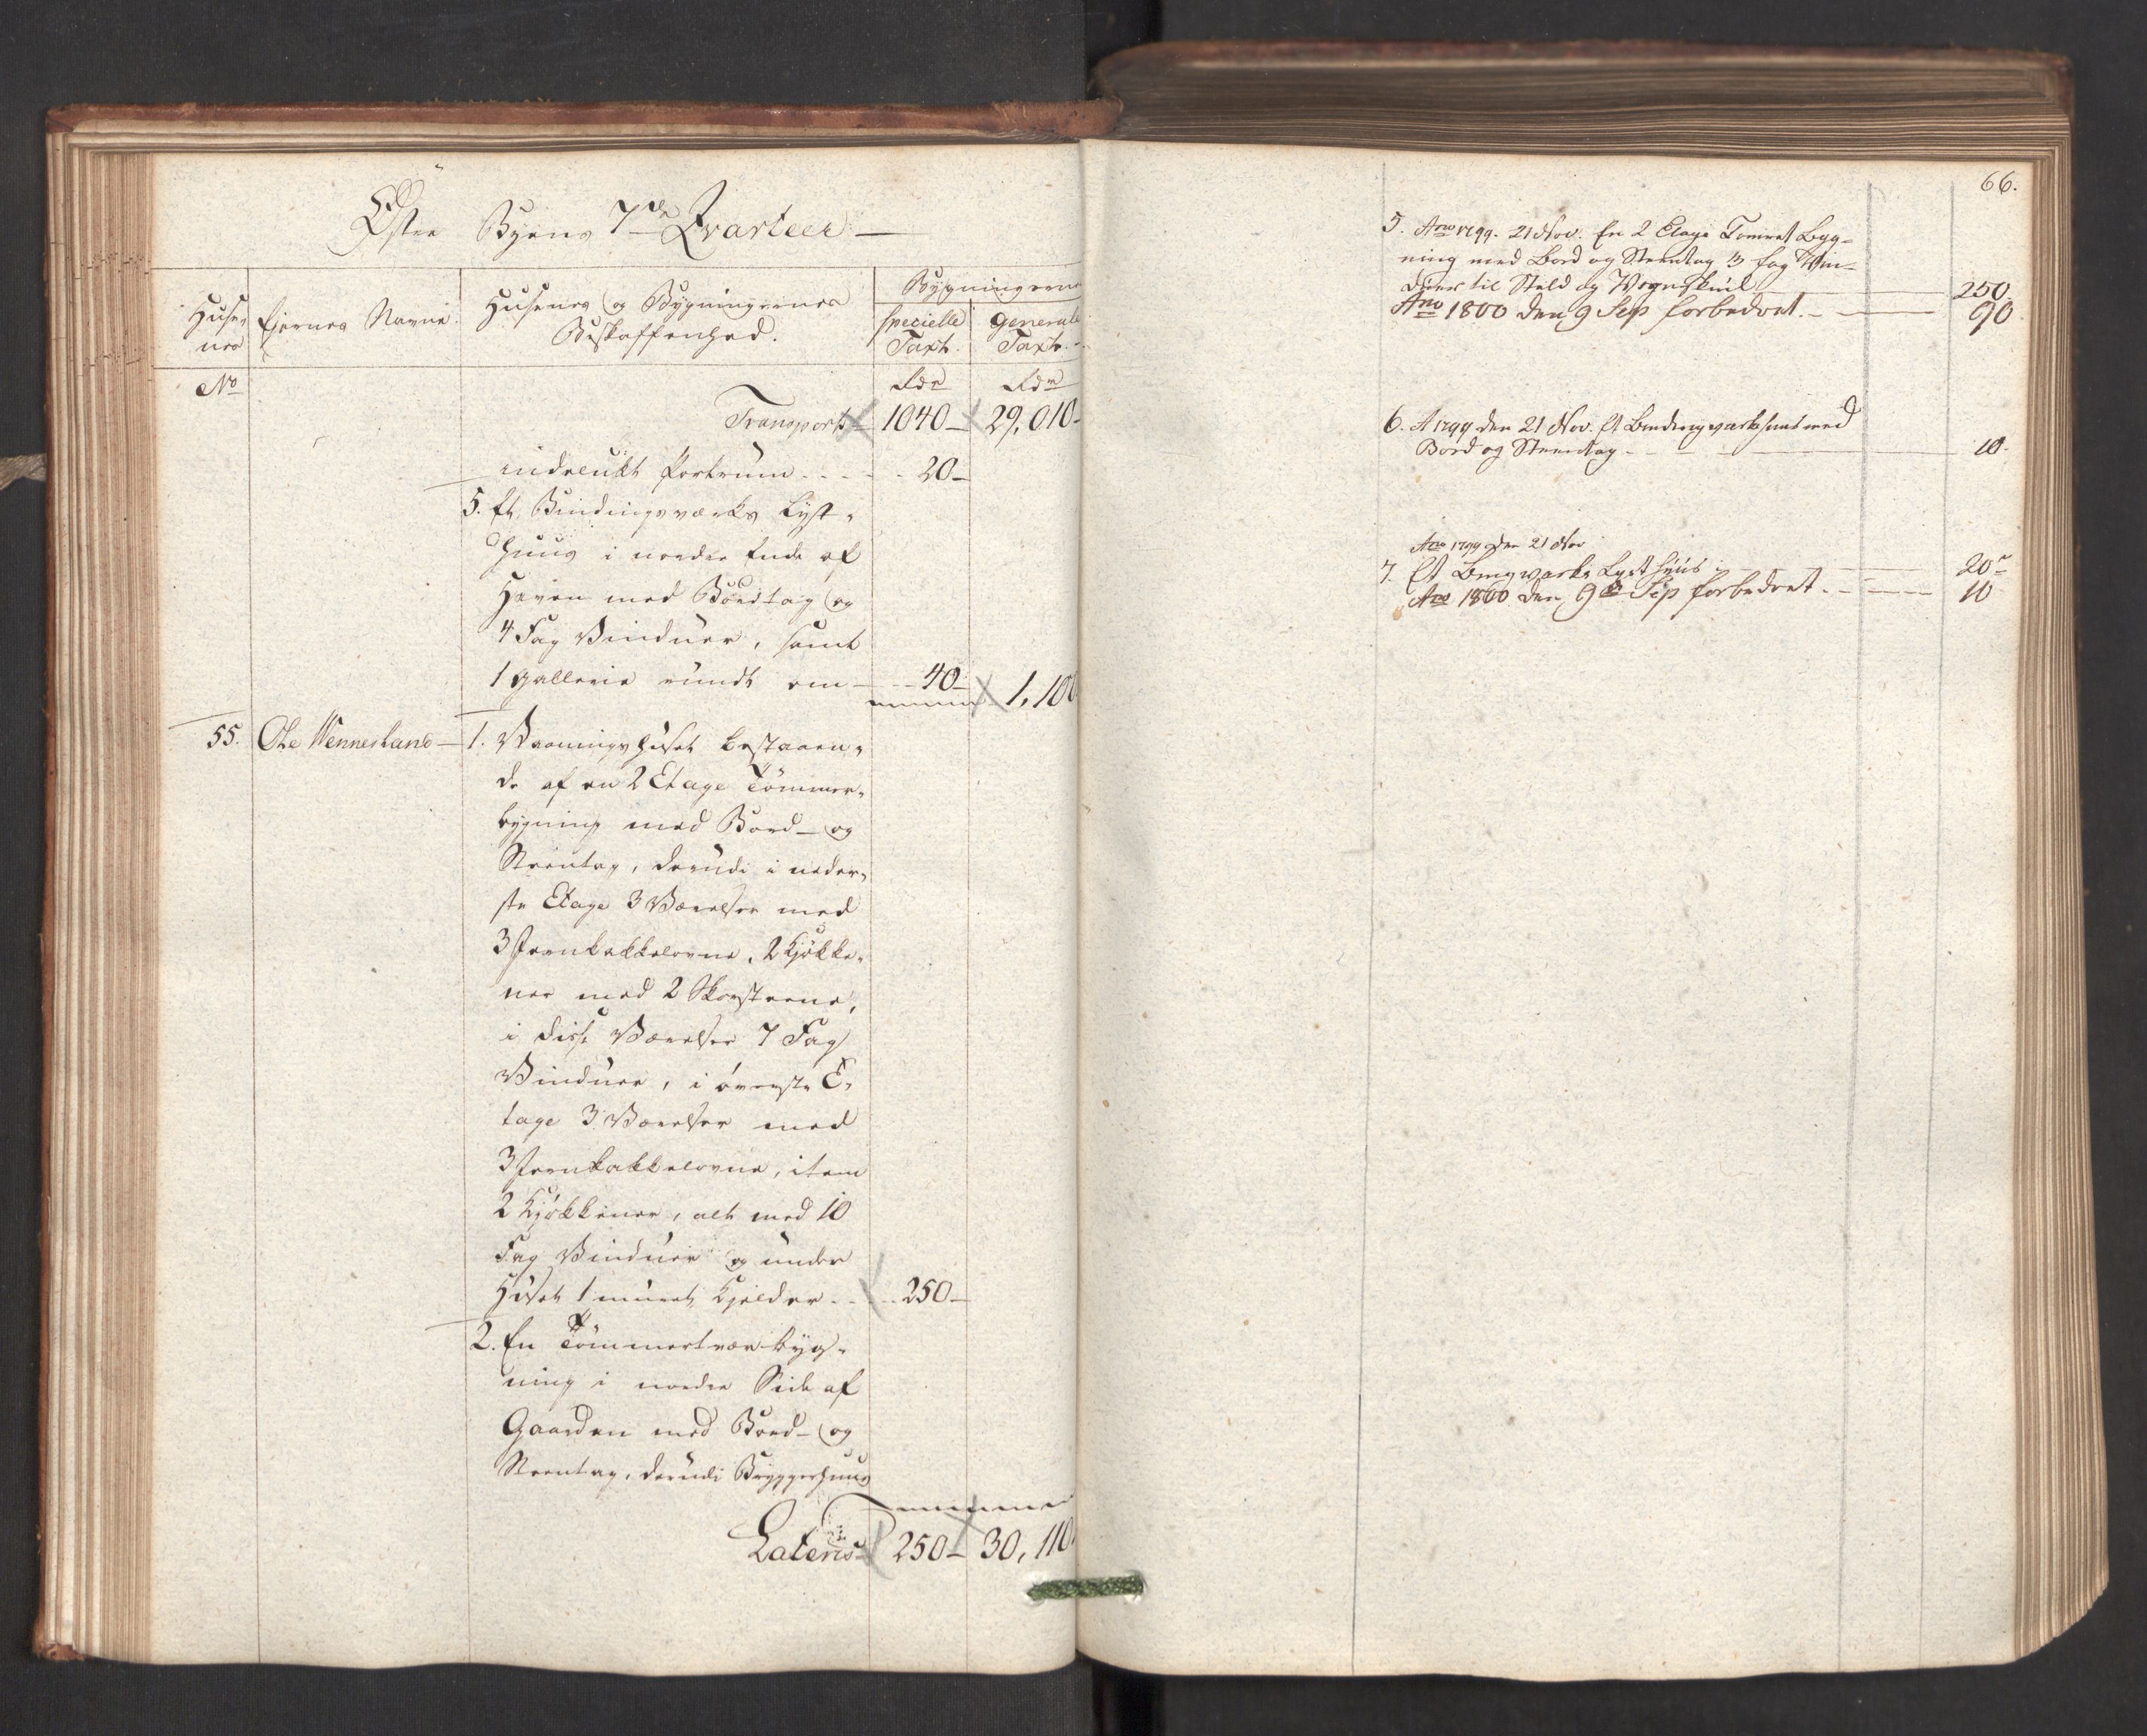 Øster Byens 7de Qvarteer
Huse-
nes
Ejernes Navne.
Husenes og Bygningernes
Beskaffenhed.
Bygningerne
specielle
Taxt.
generale
Taxt.
No
Rdr
Rdr
Transport 1040 29,010
indreukt Portrum 20
5. Et Bindingsværks Lyst-
Huus i nordre Ende af
Haven med Bordtag og
4 Fag Vinduer, samt
1 Gallerie rundt om 40 1,100
55. Ole Wennerland 1. Vaaningshuset bestaaen-
de af en 2 Etage Tømmer-
bygning med Bord- og
Steentag, derudi i neder-
ste Etage 3 Værelser med
3 Jernkakkelovne, 2 Kjøkke-
ner med 2 Skorsteene,
i disse Værelser 7 Fag
Vinduer, i øverste E-
tage 3 Værelser med
3 Jernkakkelovne, item
2 Kjøkkener, alt med 10
Fag Vinduer og under
Huset 1 muret Kjelder 250
2. En Tømmertverbyg-
ning i nordre Side af
Gaarden med Bord- og
Steentag, derudi Bryggerhuus
Lateris 250 30,110
66.
5. Ano 1799. 21 Nov. En 2 Etage Tømret Byg-
ning med Bord og Steentag 3 fag Vin-
duer til Stald og Vognskiul 250
Ano 1800 den 9 Sep forbedret. 90
6. A 1799 den 21 Nov. Et Bindingværkhuus med
Bord og Steentag 10.
Ano 1799 den 21 Nov
7. Et Bingværks Lysthuus 20
Ano 1800 den 9de Sep forbedret. 10